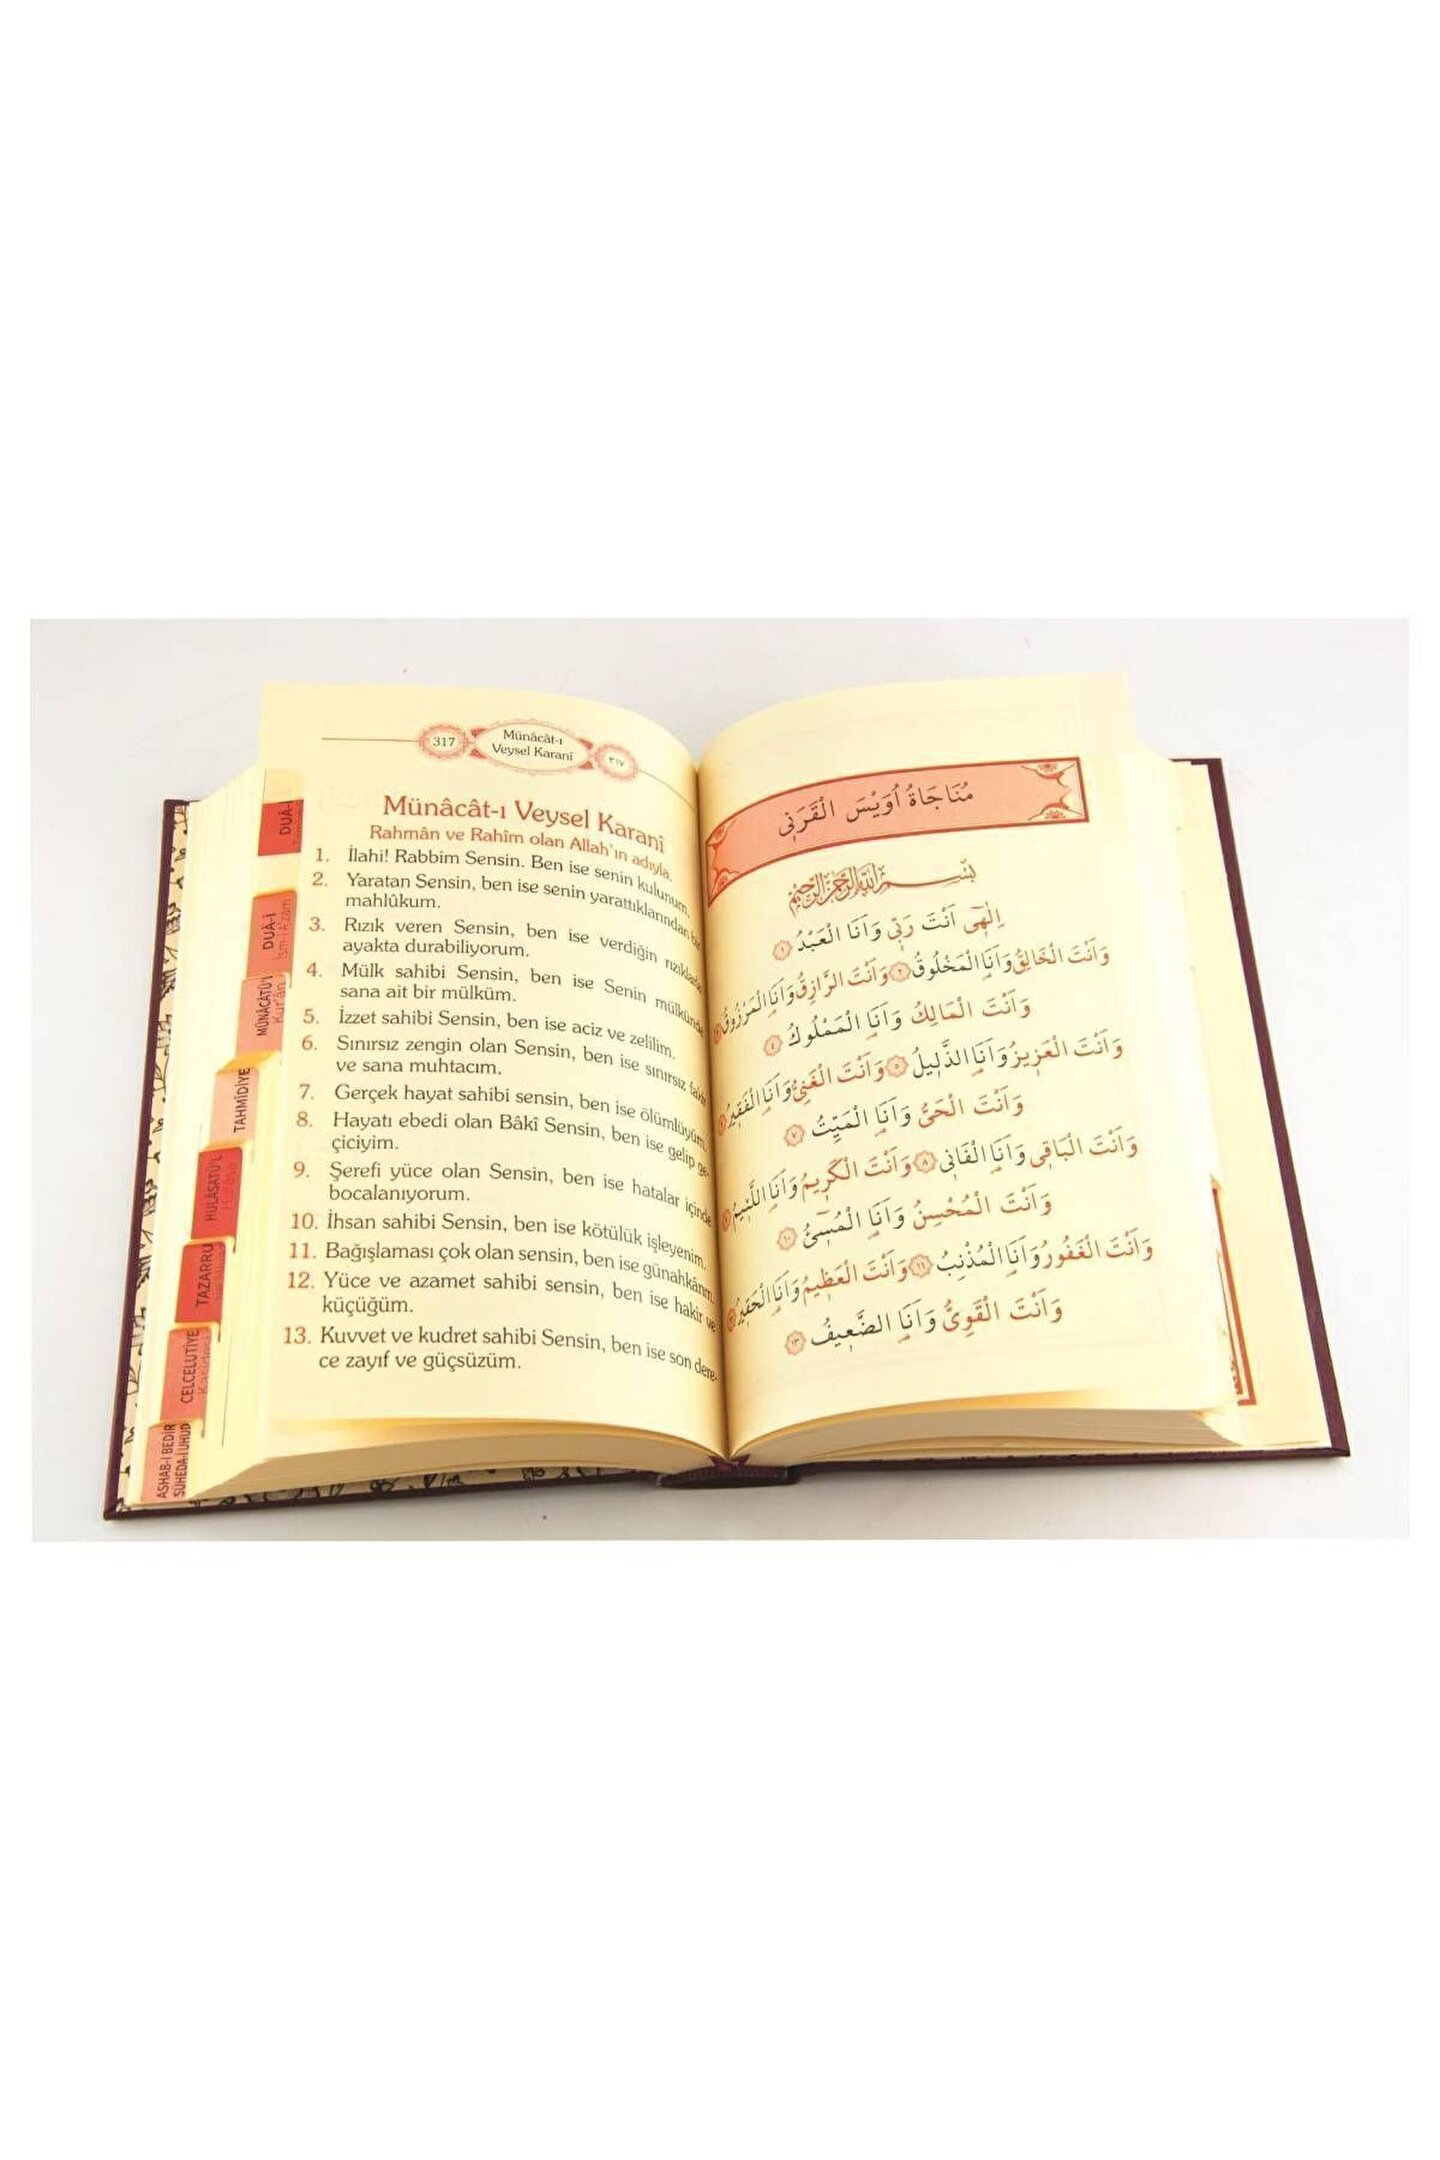 317
Münâcât-ı
Veysel Karanî
٣١٧
Münâcât-ı Veysel Karanî
Rahmân ve Rahîm olan Allah'ın adıyla.
1. İlahi! Rabbim Sensin. Ben ise senin kulunum.
2. Yaratan Sensin, ben ise senin yarattıklarından bir
mahlûkum.
3. Rızık veren Sensin, ben ise verdiğin rızıklarla
ayakta durabiliyorum.
4. Mülk sahibi Sensin, ben ise Senin mülkünde
sana ait bir mülküm.
5. İzzet sahibi Sensin, ben ise aciz ve zelilim.
6. Sınırsız zengin olan Sensin, ben ise sınırsız fakir
ve sana muhtacım.
7. Gerçek hayat sahibi sensin, ben ise ölümlüyüm.
8. Hayatı ebedi olan Bâkî Sensin, ben ise gelip ge-
çiciyim.
9. Şerefi yüce olan Sensin, ben ise hatalar içinde
bocalanıyorum.
10. İhsan sahibi Sensin, ben ise kötülük işleyenim.
11. Bağışlaması çok olan sensin, ben ise günahkârım.
12. Yüce ve azamet sahibi sensin, ben ise hakir ve
küçüğüm.
13. Kuvvet ve kudret sahibi Sensin, ben ise son dere-
ce zayıf ve güçsüzüm.
DUÂ-İ
DUÂ-İ
İsm-i A'zam
MÜNÂCÂTÜ'L
Kur'ân
TAHMİDİYE
HULÂSATÜ'L
TAZARRU
CELCELUTİYE
Kasidesi
ASHAB-I BEDİR
ŞÜHEDA-İ UHUD
مُنَاجَاةُ اُوَيْسَ الْقَرَنٖى
بِسْمِ اللّٰهِ الرَّحْمٰنِ الرَّحٖيمِ
اِلٰهٖى اَنْتَ رَبّٖى وَاَنَا الْعَبْدُ ١
وَاَنْتَ الْخَالِقُ وَاَنَا الْمَخْلُوقُ ٢ وَاَنْتَ الرَّازِقُ وَاَنَا الْمَرْزُوقُ ٣
وَاَنْتَ الْمَالِكُ وَاَنَا الْمَمْلُوكُ ٤
وَاَنْتَ الْعَزٖيزُ وَاَنَا الذَّلٖيلُ ٥ وَاَنْتَ الْغَنِىُّ وَاَنَا الْفَقٖيرُ ٦
وَاَنْتَ الْحَىُّ وَاَنَا الْمَيِّتُ ٧
وَاَنْتَ الْبَاقٖى وَاَنَا الْفَانٖى ٨ وَاَنْتَ الْكَرٖيمُ وَاَنَا اللَّئٖيمُ ٩
وَاَنْتَ الْمُحْسِنُ وَاَنَا الْمُسٖٓئُ ١٠
وَاَنْتَ الْغَفُورُ وَاَنَا الْمُذْنِبُ ١١ وَاَنْتَ الْعَظٖيمُ وَاَنَا الْحَقٖيرُ ١٢
وَاَنْتَ الْقَوِىُّ وَاَنَا الضَّعٖيفُ ١٣